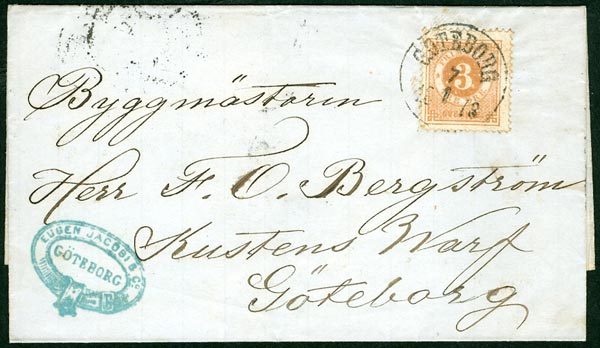 GÖTEBORG
7
1
73
3
Byggmästaren
Herr F. O. Bergström
Kustens Warf
Göteborg
EUGEN JACOBI & Co
GÖTEBORG